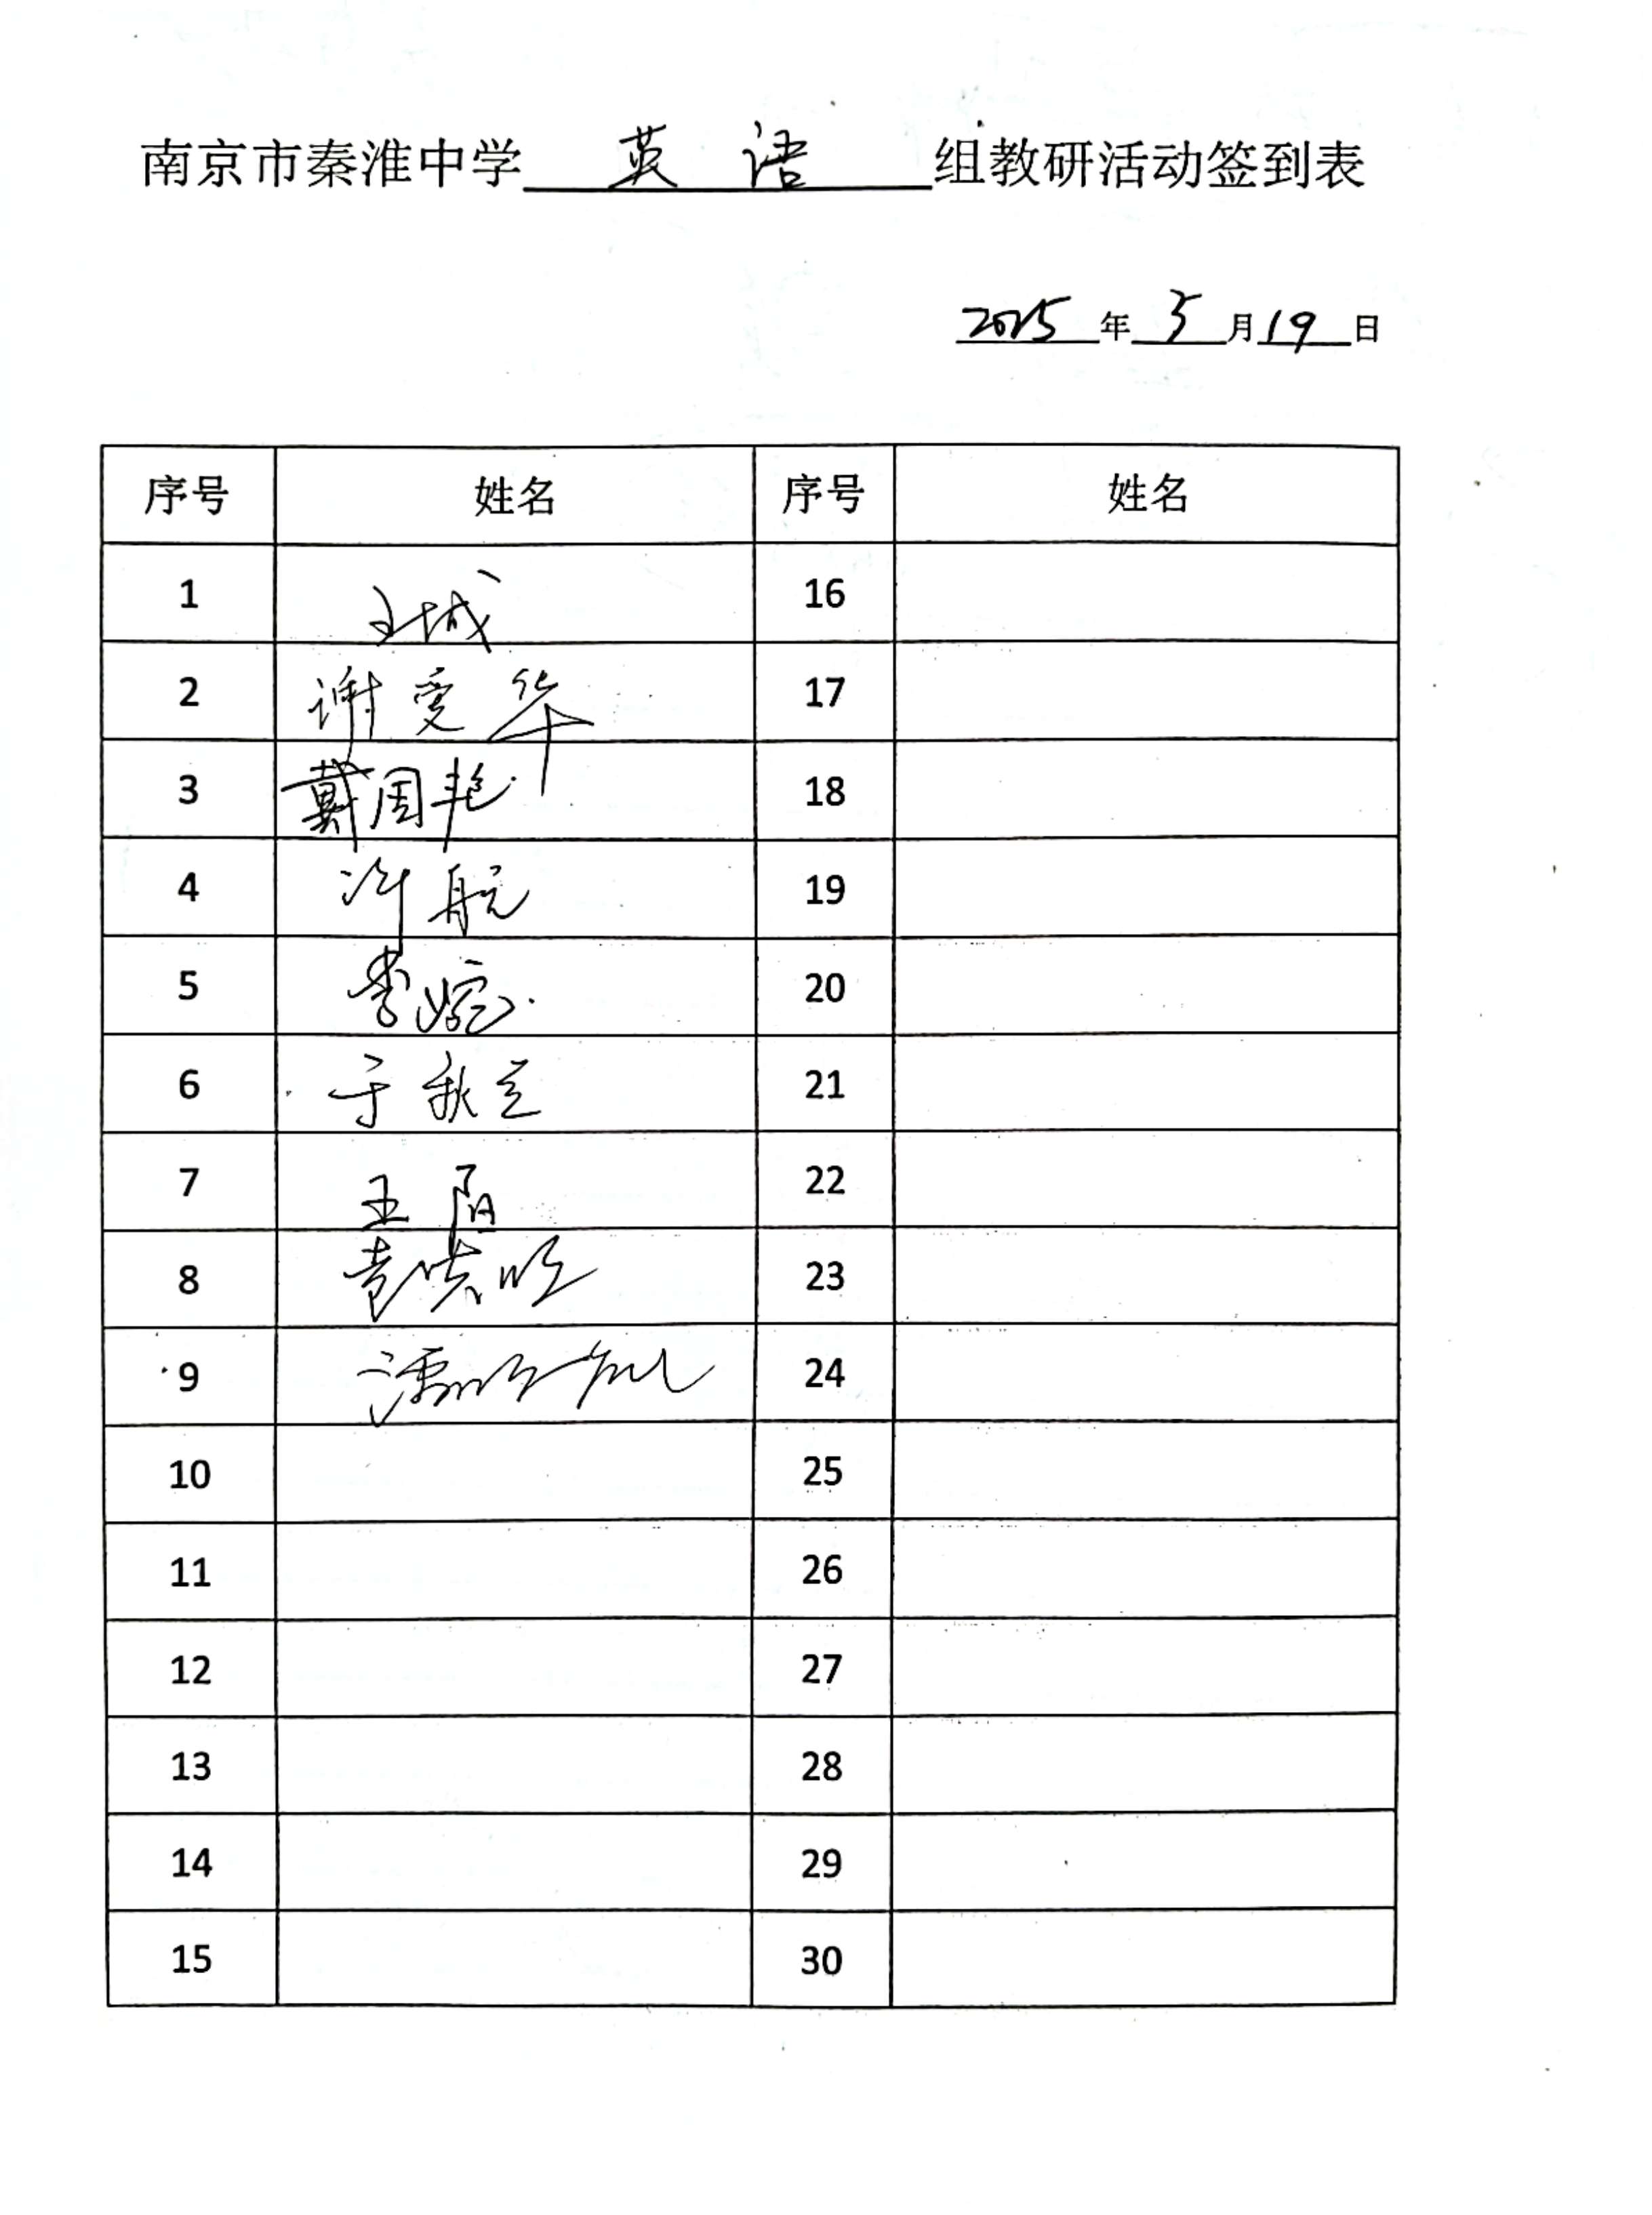 南京市秦淮中学 英语 组教研活动签到表
2025 年 5 月 19 日
序号 姓名 序号 姓名
1 王城 16
2 谢爱华 17
3 戴周艳 18
4 许航 19
5 李婉 20
6 于秋兰 21
7 王阳 22
8 23
9 24
10 25
11 26
12 27
13 28
14 29
15 30